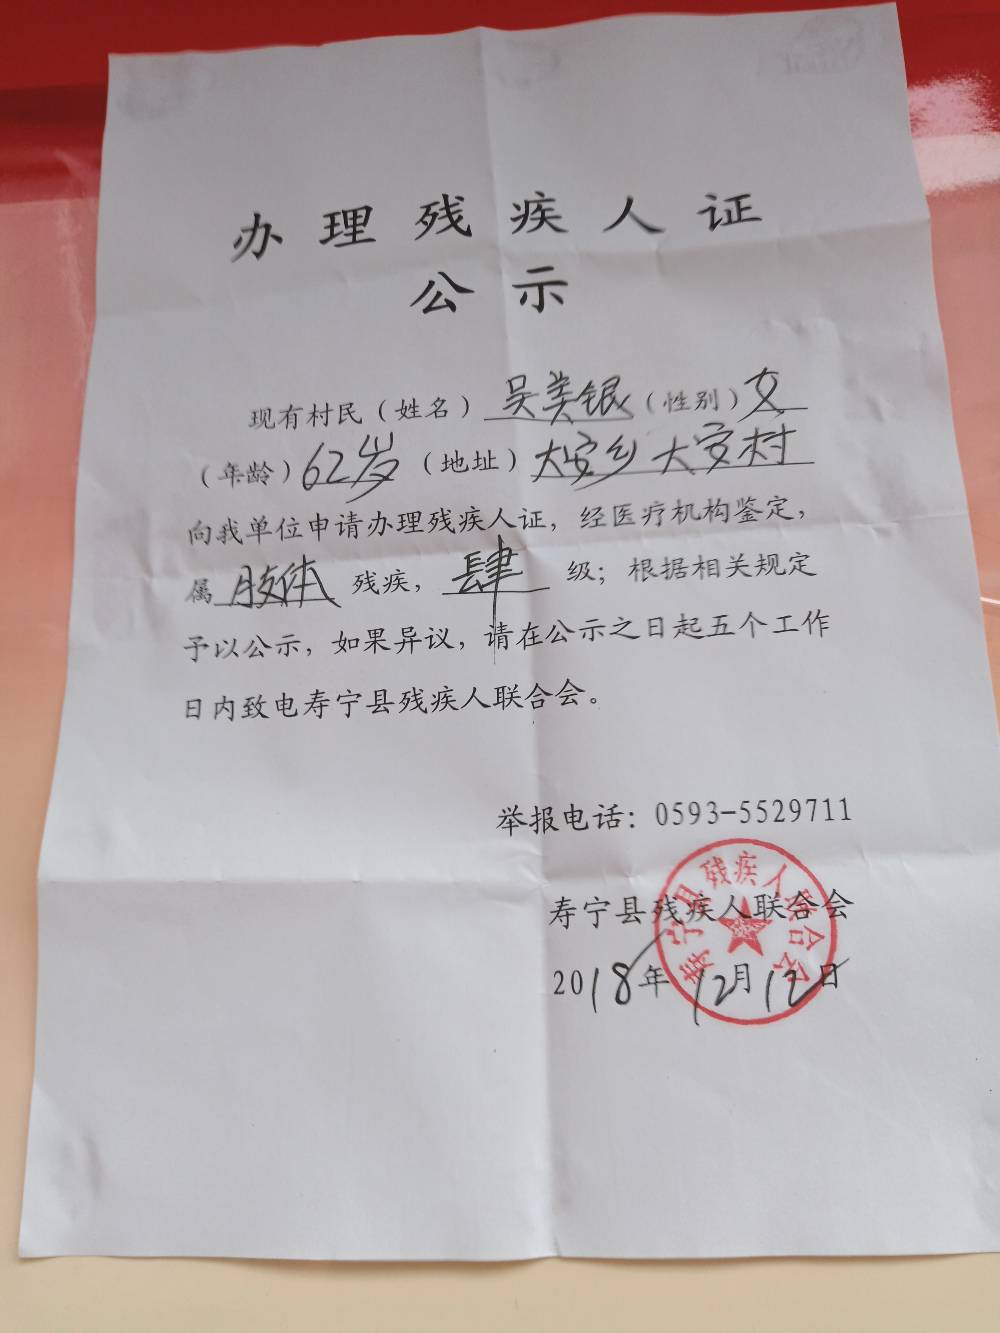 办理残疾人证
公示
现有村民（姓名）吴美银（性别）女
（年龄）62岁（地址）大安乡大安村
向我单位申请办理残疾人证，经医疗机构鉴定，
属肢体残疾，肆级；根据相关规定
予以公示，如果异议，请在公示之日起五个工作
日内致电寿宁县残疾人联合会。
举报电话：0593-5529711
寿宁县残疾人联合会
2018年12月12日
寿宁县残疾人联合会